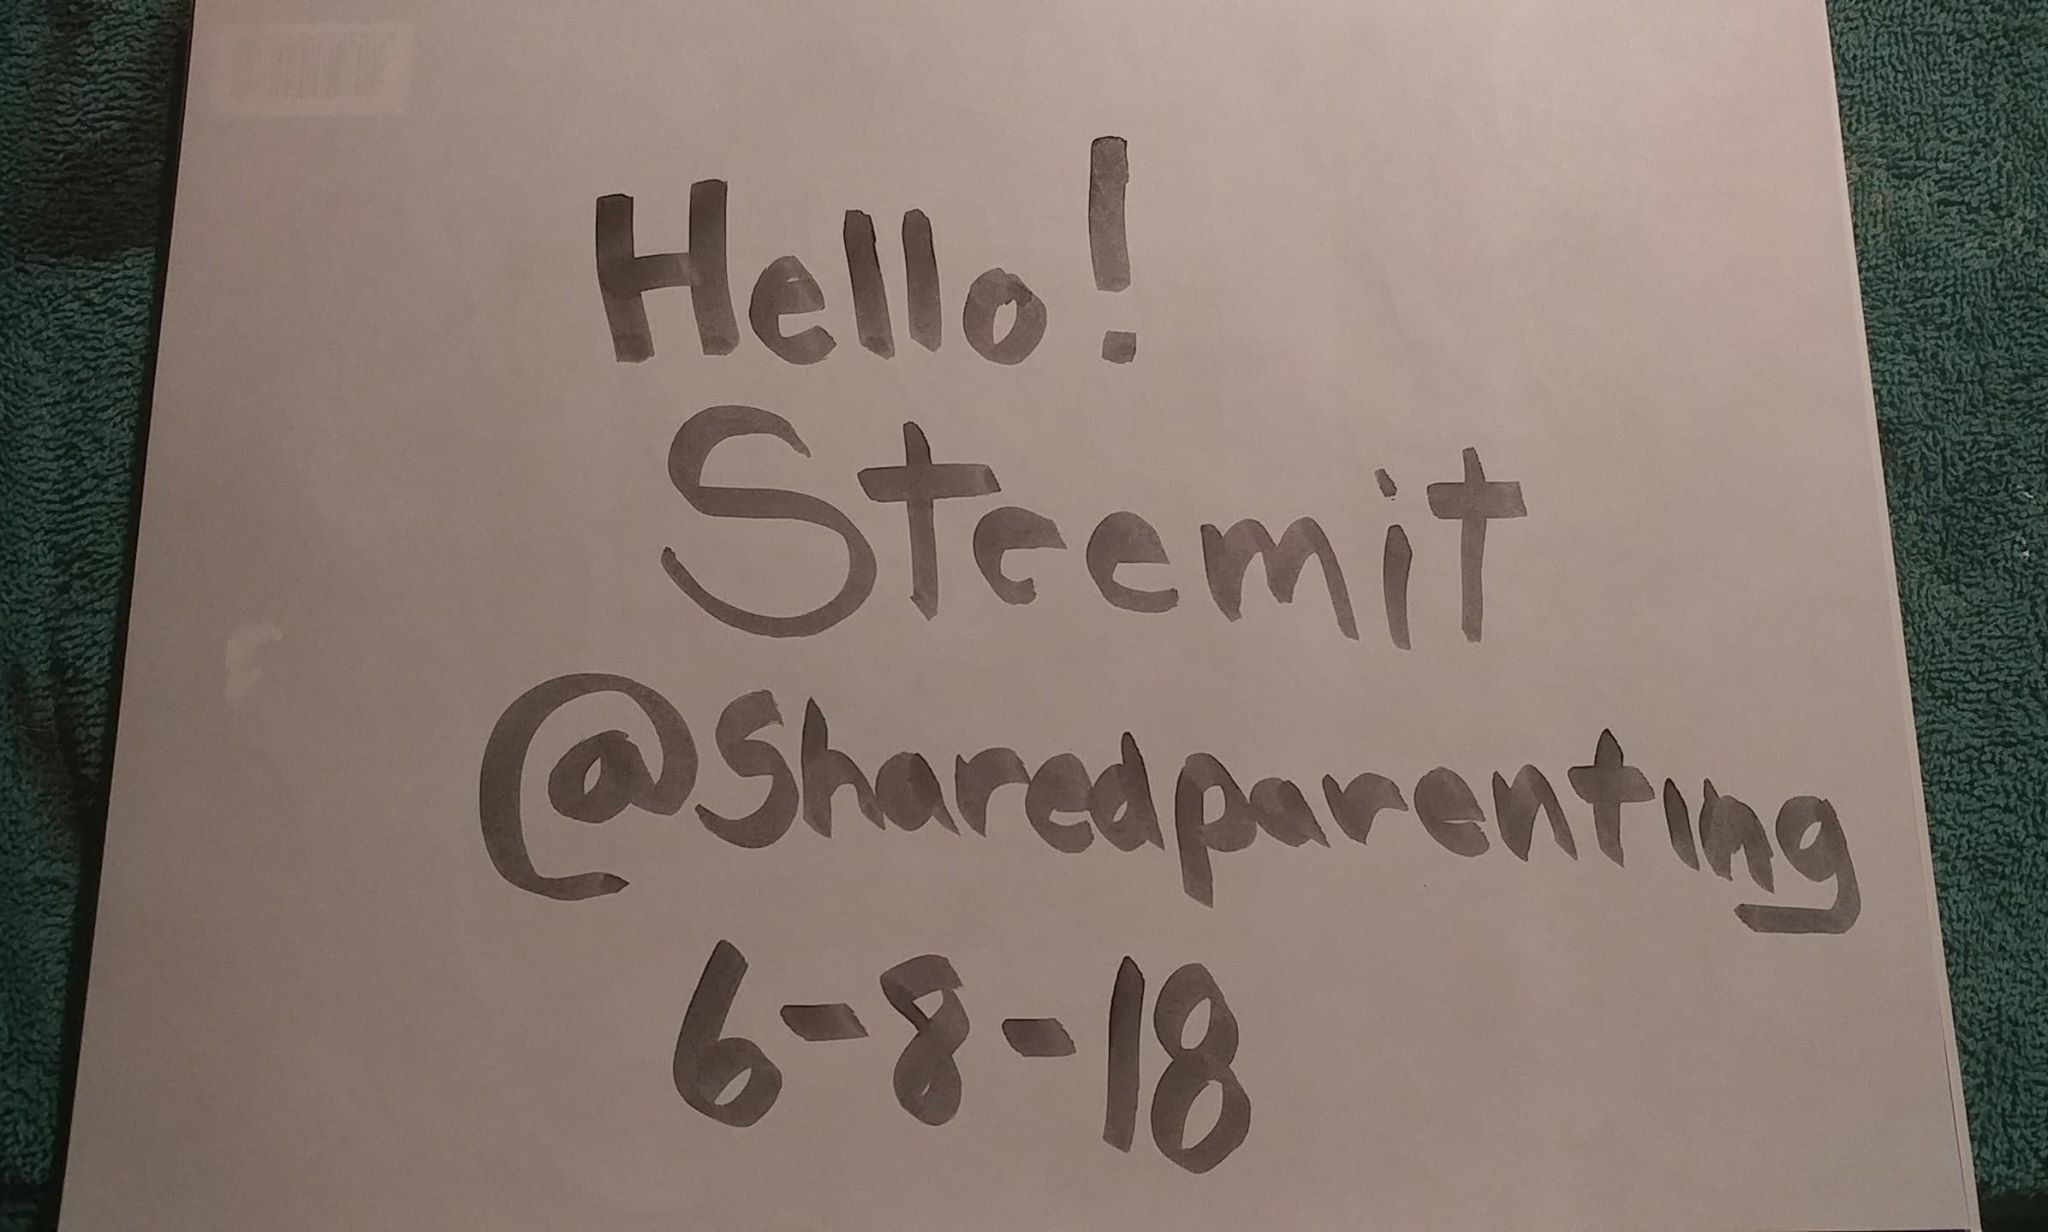 Hello!
Steemit
@Sharedparenting
6-8-18